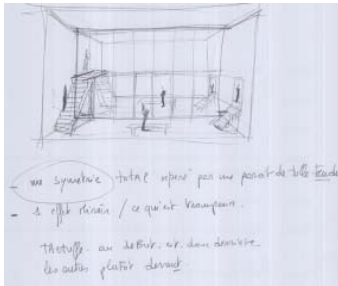 - une symetrie totale opéré par une paroi de tulle tendu
- 1 effet miroir / ce qui est
Tartuffe au debut est donc derriere
les autres plutôt devant